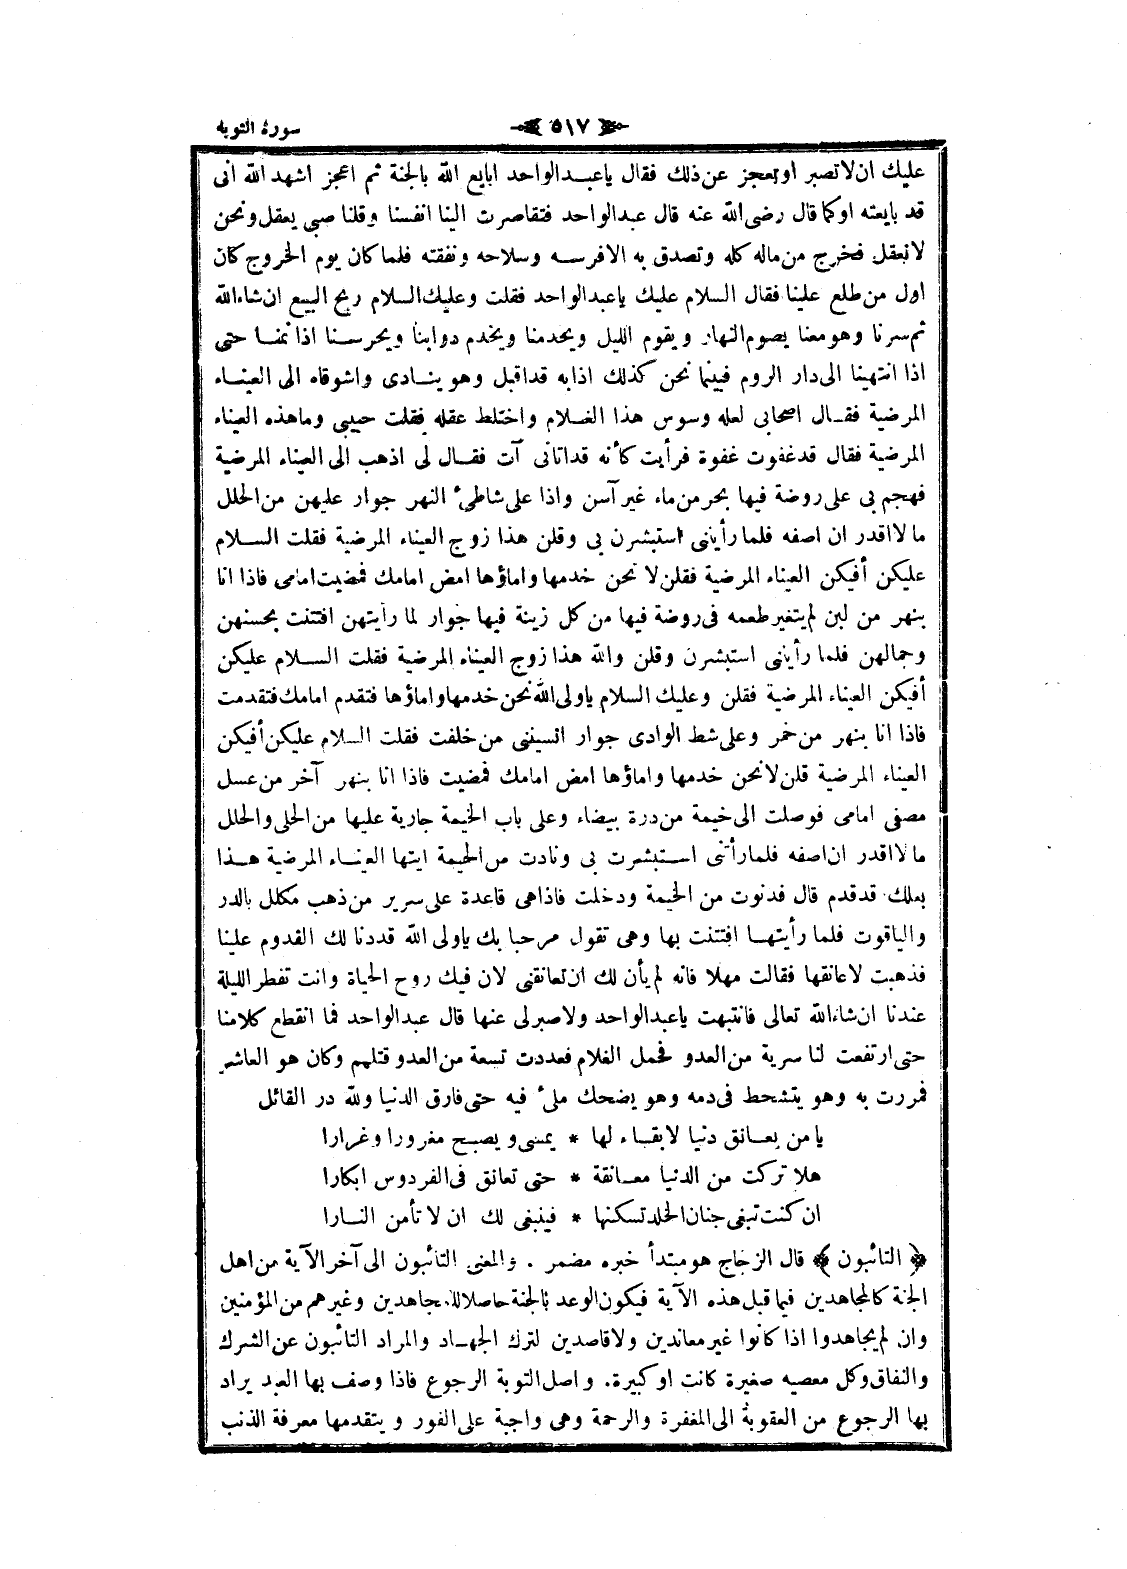 سورة التوبة
٥١٧
عليك ان لا تصبر او تعجز عن ذلك فقال يا عبد الواحد ابايع الله بالجنة ثم اعجز اشهد الله انى
قد بايعته او كما قال رضى الله عنه قال عبد الواحد فتقاصرت الينا انفسنا وقلنا صبى يعقل ونحن
لا نعقل فخرج من ماله كله وتصدق به الا فرسه وسلاحه ونفقته فلما كان يوم الخروج كان
اول من طلع علينا فقال السلام عليك يا عبد الواحد فقلت وعليك السلام ربح البيع ان شاء الله
ثم سرنا وهو معنا يصوم النهار ويقوم الليل ويخدمنا ويخدم دوابنا ويحرسنا اذا نمنا حتى
اذا انتهينا الى دار الروم فبينما نحن كذلك اذا به قد اقبل وهو ينادى واشوقاه الى العيناء
المرضية فقال اصحابى لعله وسوس هذا الغلام واختلط عقله فقلت حبيبى وما هذه العيناء
المرضية فقال قد غفوت غفوة فرأيت كأنه قد اتانى آت فقال لى اذهب الى العيناء المرضية
فهجم بى على روضة فيها بحر من ماء غير آسن واذا على شاطئ النهر جوار عليهن من الحلل
ما لا اقدر ان اصفه فلما رأيننى استبشرن بى وقلن هذا زوج العيناء المرضية فقلت السلام
عليكن أفيكن العيناء المرضية فقلن لا نحن خدمها واماؤها امض امامك فمضيت امامى فاذا انا
بنهر من لبن لم يتغير طعمه فى روضة فيها من كل زينة فيها جوار لما رأيتهن افتتنت بحسنهن
وجمالهن فلما رأيننى استبشرن وقلن والله هذا زوج العيناء المرضية فقلت السلام عليكن
أفيكن العيناء المرضية فقلن وعليك السلام يا ولى الله نحن خدمها واماؤها فتقدم امامك فتقدمت
فاذا انا بنهر من خمر وعلى شط الوادى جوار انسيننى من خلفت فقلت السلام عليكن أفيكن
العيناء المرضية قلن لا نحن خدمها واماؤها امض امامك فمضيت فاذا انا بنهر آخر من عسل
مصفى امامى فوصلت الى خيمة من درة بيضاء وعلى باب الخيمة جارية عليها من الحلى والحلل
ما لا اقدر ان اصفه فلما رأتنى استبشرت بى ونادت من الخيمة ايتها العيناء المرضية هذا
بعلك قد قدم قال فدنوت من الخيمة ودخلت فاذا هى قاعدة على سرير من ذهب مكلل بالدر
والياقوت فلما رأيتها افتتنت بها وهى تقول مرحبا بك يا ولى الله قد دنا لك القدوم علينا
فذهبت لاعانقها فقالت مهلا فانه لم يأن لك ان تعانقنى لان فيك روح الحياة وانت تفطر الليلة
عندنا ان شاء الله تعالى فانتبهت يا عبد الواحد ولا صبر لى عنها قال عبد الواحد فما انقطع كلامنا
حتى ارتفعت لنا سرية من العدو فحمل الغلام فعددت تسعة من العدو قتلهم وكان هو العاشر
فمررت به وهو يتشحط فى دمه وهو يضحك ملئ فيه حتى فارق الدنيا ولله در القائل
يا من يعانق دنيا لا بقاء لها * يمسى ويصبح مغرورا وغرارا
هلا تركت من الدنيا معانقة * حتى تعانق فى الفردوس ابكارا
ان كنت تبغى جنان الخلد تسكنها * فينبغى لك ان لا تأمن النارا
﴿التائبون﴾ قال الزجاج هو مبتدأ خبره مضمر . والمعنى التائبون الى آخر الآية من اهل
الجنة كالمجاهدين فيما قبل هذه الآية فيكون الوعد بالجنة حاصلا للمجاهدين وغيرهم من المؤمنين
وان لم يجاهدوا اذا كانوا غير معاندين ولا قاصدين لترك الجهاد والمراد التائبون عن الشرك
والنفاق وكل معصيه صغيرة كانت او كبيرة. واصل التوبة الرجوع فاذا وصف بها العبد يراد
بها الرجوع من العقوبة الى المغفرة والرحمة وهى واجبة على الفور ويتقدمها معرفة الذنب